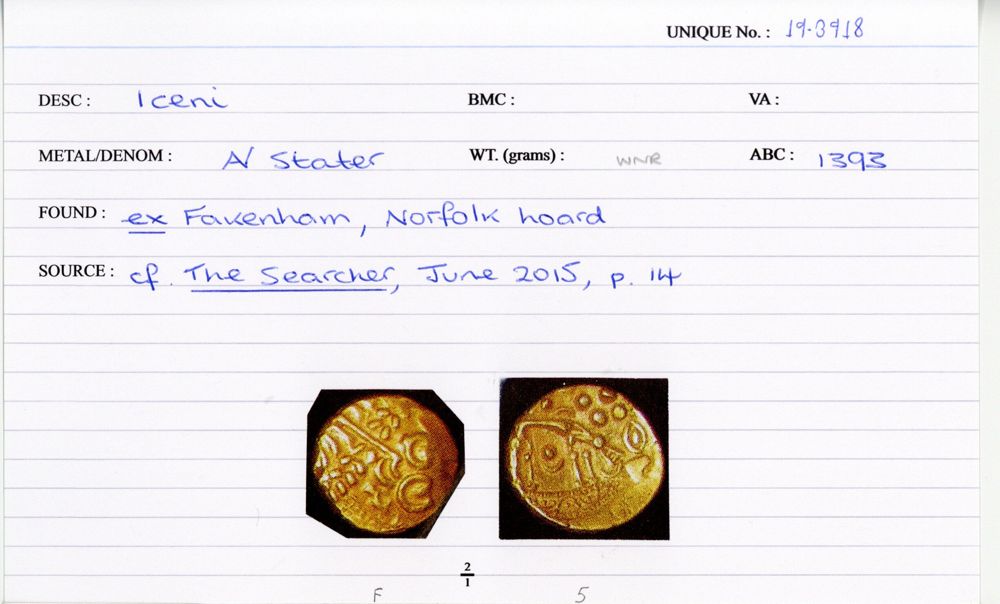 UNIQUE No. : 19.3918
DESC : Iceni BMC : VA :
METAL/DENOM : A/ Stater WT. (grams) : WNR ABC : 1393
FOUND : ex Fakenham, Norfolk hoard
SOURCE : cf. The Searcher, June 2015, p. 14
2
1
F 5